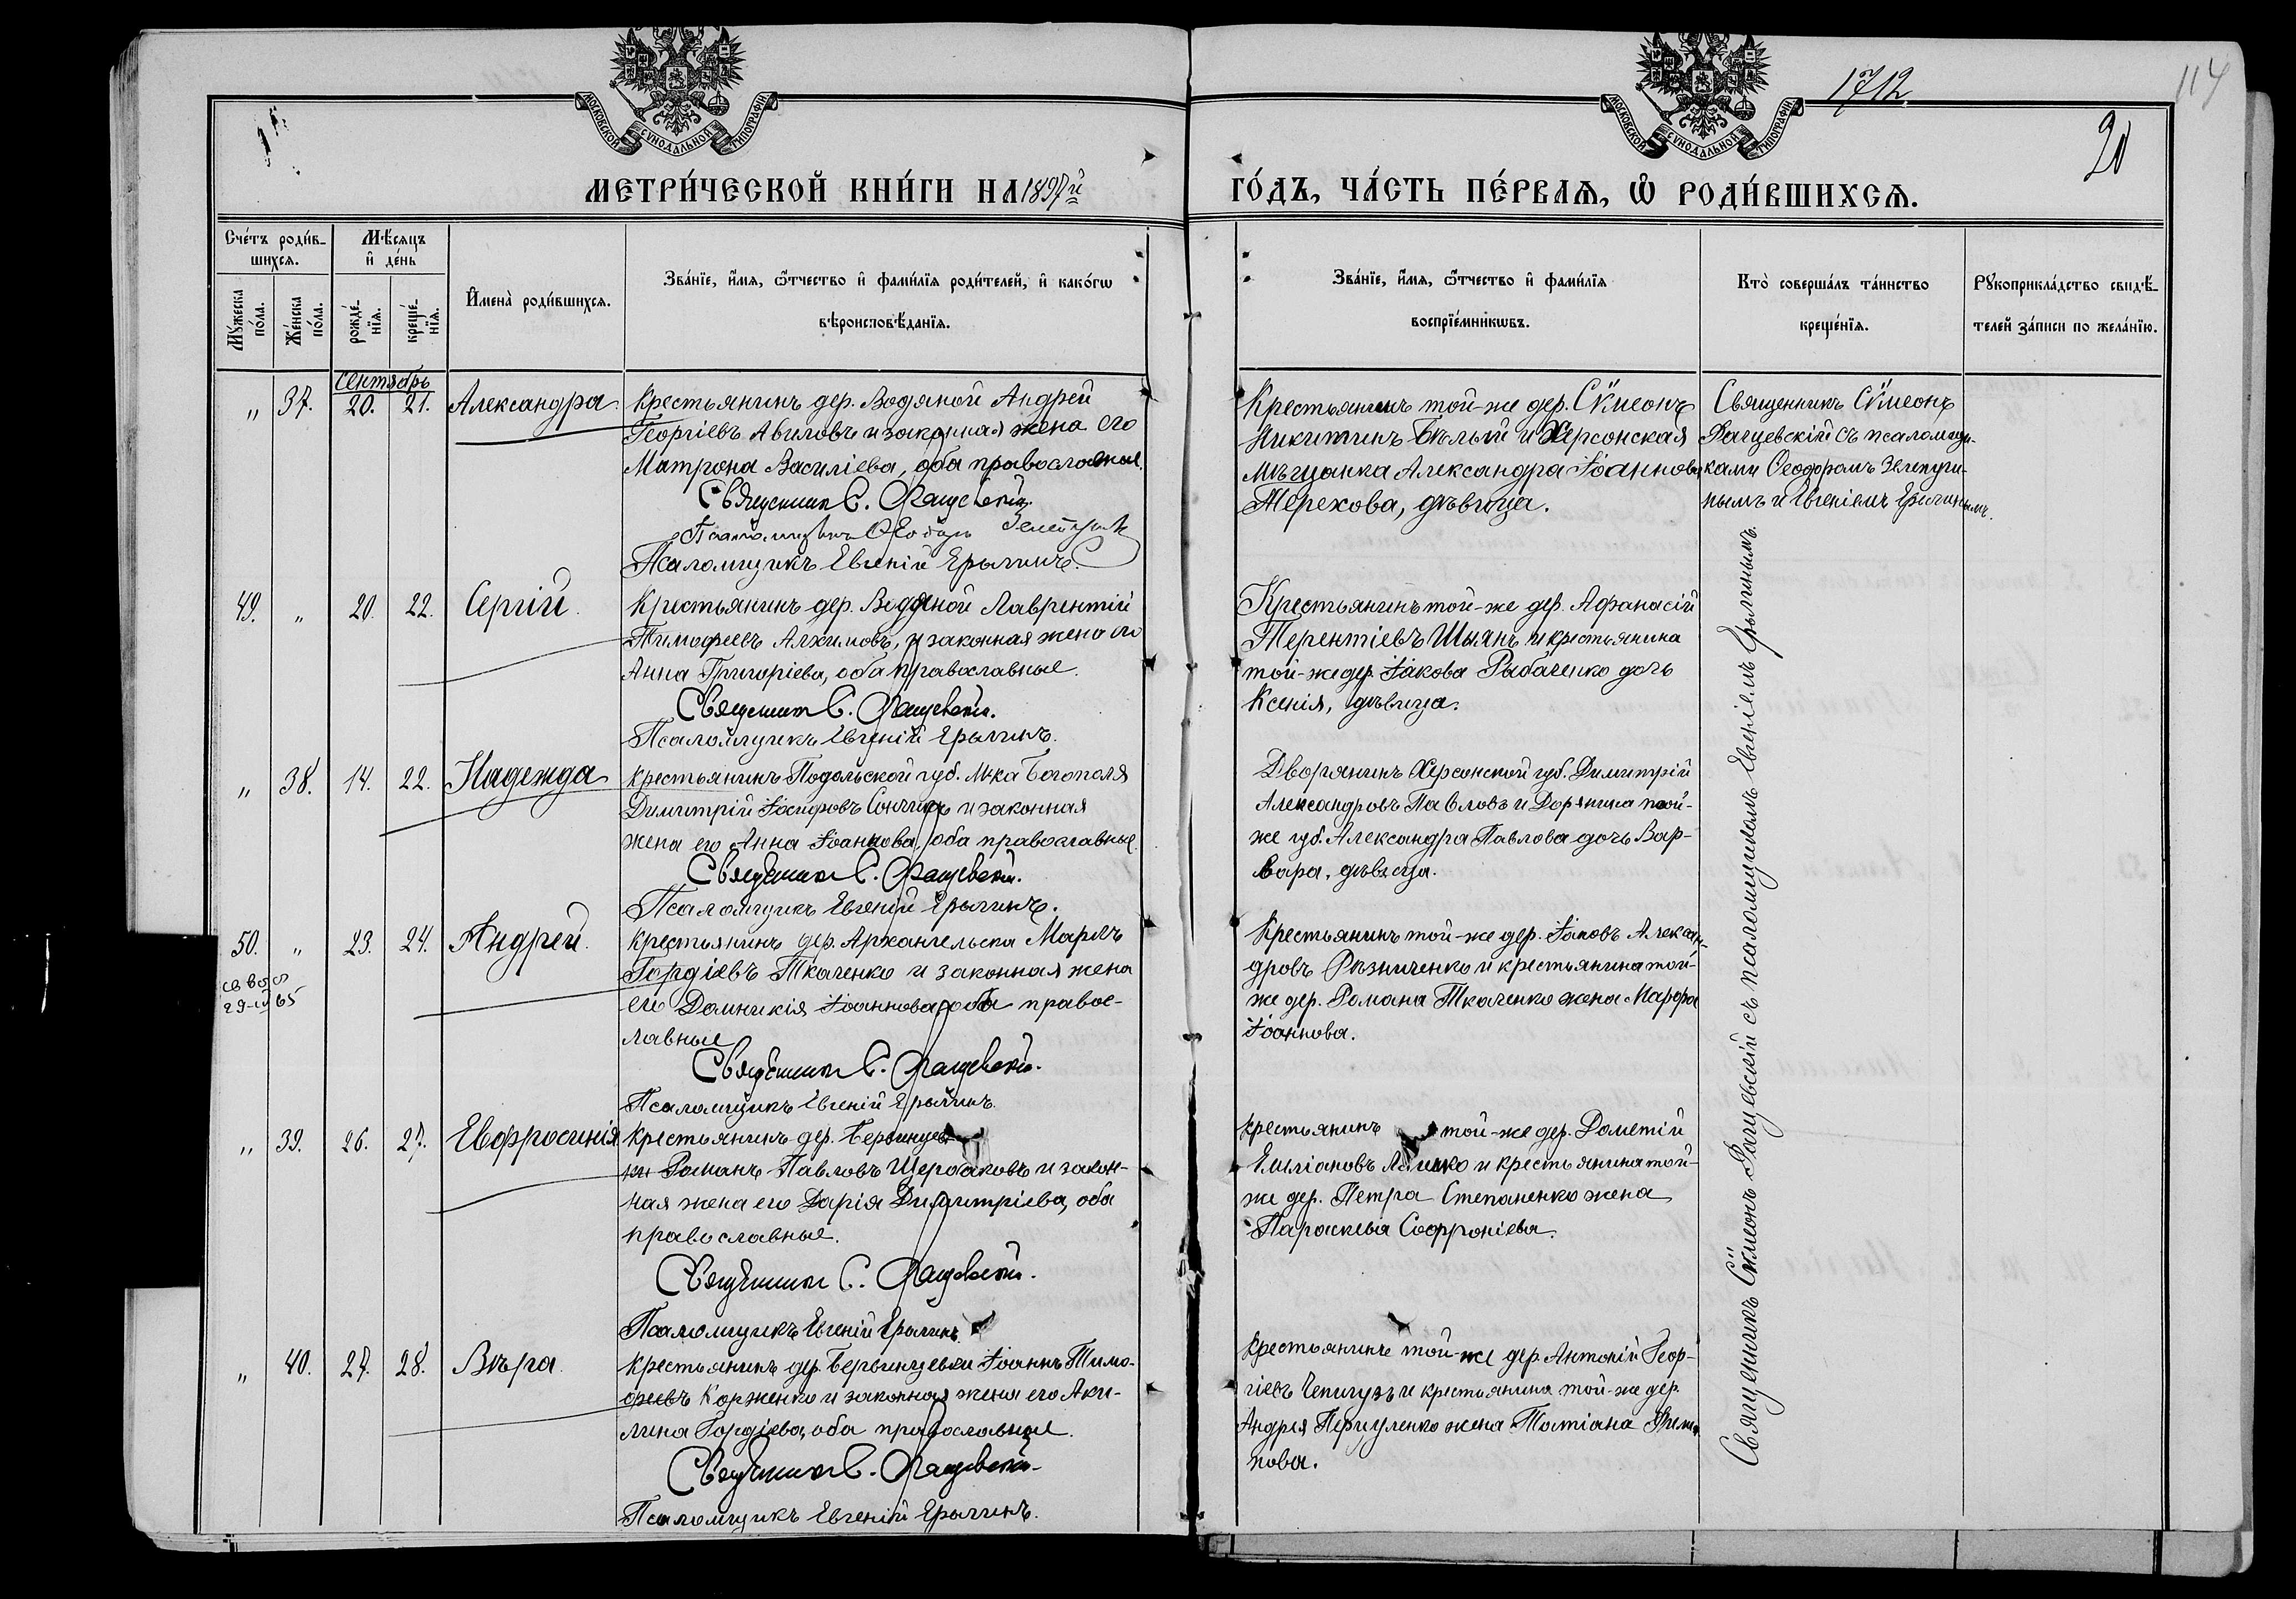 МОСКОВСКОЙ СѴНОДАЛЬНОЙ ТИПОГРАФІИ
МОСКОВСКОЙ СѴНОДАЛЬНОЙ ТИПОГРАФІИ
1712
114
20
МЕТРИ́ЧЕСКОЙ КНИ́ГИ НА 1897й
ГО́ДЪ, ЧА́СТЬ ПЕ́РВАѦ, Ѿ РОДИ́ВШИХСѦ.
Сче́тъ роди́в-
шихсѧ.
Мѣ́сѧцъ
и҆ де́нь
Мꙋ́жеска
по́ла.
Же́нска
по́ла.
рожде́-
нїѧ.
креще́-
нїѧ.
И҆мена̀ роди́вшихсѧ.
Зва́нїе, и҆́мѧ, ѻ҆́тчество и҆ фами́лїѧ роди́телей, и҆ како́гѡ
вѣроисповѣ́данїѧ.
Зва́нїе, и҆́мѧ, ѻ҆́тчество и҆ фами́лїѧ
воспрїе́мникѡвъ.
Кто̀ соверша́лъ та́инство
креще́нїѧ.
Рꙋкоприкла́дство свидѣ́-
телей за́писи по жела́нїю.
Сентябрь
" 37. 20. 21. Александра
Крестьянинъ дер. Водяной Андрей
Георгіевъ Авиловъ и законная жена его
Матрона Василіева, оба православные.
Священникъ С. Ращевскій.
Псаломщикъ Ѳеодоръ
Псаломщикъ Евгеній Ерыгинъ.
Крестьянинъ той-же дер. Сѵмеонъ
Никитинъ Бѣлый и Херсонская
мѣщанка Александра Іоаннова
Терехова, дѣвица.
Священникъ Сѵмеонъ
Ращевскій съ псаломщи-
ками Ѳеодоромъ Зелепуги-
нымъ и Евгеніемъ Ерыгинымъ.
49. " 20. 22. Сергій.
Крестьянинъ дер. Водяной Лаврентій
Тимофеевъ Алхимовъ, и законная жена его
Анна Григоріева, оба православные.
Священникъ С. Ращевскій.
Псаломщикъ Евгеній Ерыгинъ.
Крестьянинъ той-же дер. Афанасій
Терентіевъ Шіянъ и крестьянина
той-же дер. Іакова Рыбаченко дочь
Ксенія, дѣвица.
" 38. 14. 22. Надежда
Крестьянинъ Подольской губ. М-ка Богополя
Димитрій Іосифовъ и законная
жена его Анна Іоаннова, оба православные.
Священникъ С. Ращевскій.
Псаломщикъ Евгеній Ерыгинъ.
Дворянинъ Херсонской губ. Димитрій
Александровъ Павловъ и Дорянина той-
же губ. Александра Павлова дочь Вар-
вара, дѣвица.
50. " 23. 24. Андрей.
Крестьянинъ дер. Архангельска Маркъ
Гордіевъ Ткаченко и законная жена
его Домникія Іоаннова, оба правос-
лавные
Священникъ С. Ращевскій.
Псаломщикъ Евгеній Ерыгинъ.
Крестьянинъ той-же дер. Іаковъ Алексан-
дровъ Рѣзниченко и крестьянина той-
же дер. Романа Ткаченко жена Марфа
Іоаннова.
" 39. 26. 27. Евфросинія
Крестьянинъ дер. Бервинцев
ки Романъ Павловъ Щербаковъ и закон-
ная жена его Дарія Димитріева, оба
православные.
Священникъ С. Ращевскій.
Псаломщикъ Евгеній Ерыгинъ
Крестьянинъ той-же дер. Дометій
Емиліановъ и крестьянина той-
же дер. Петра Степаненко жена
Параскева Софроніева.
" 40. 27. 28. Вѣра.
Крестьянинъ дер. Бервинцевки Іоаннъ Тимо-
феевъ Корженко и законная жена его Аки-
лина Гордіева, оба православные.
Священникъ С. Ращевскій.
Псаломщикъ Евгеній Ерыгинъ.
Крестьянинъ той-же дер. Антоній Геор-
гіевъ и крестьянина той-же дер.
Андрея жена Татіана
пова.
Священникъ Сѵмеонъ Ращевскій съ псаломщикомъ Евгеніемъ Ерыгинымъ.